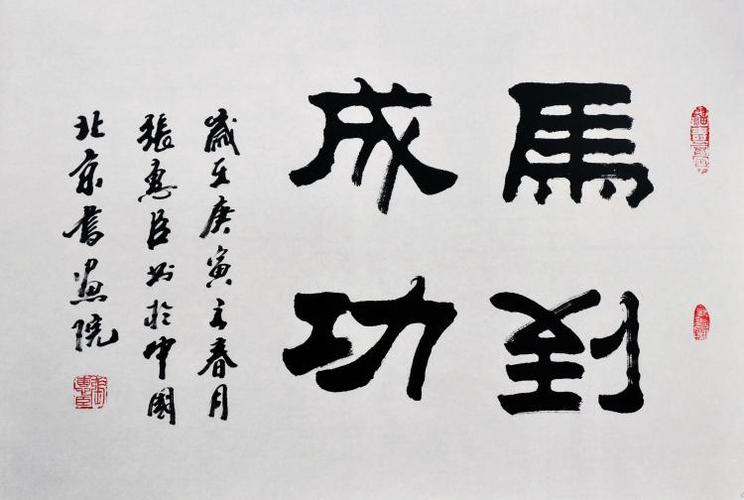 馬到
成功
歲在庚寅之春月
張惠臣書於中國
北京書畫院